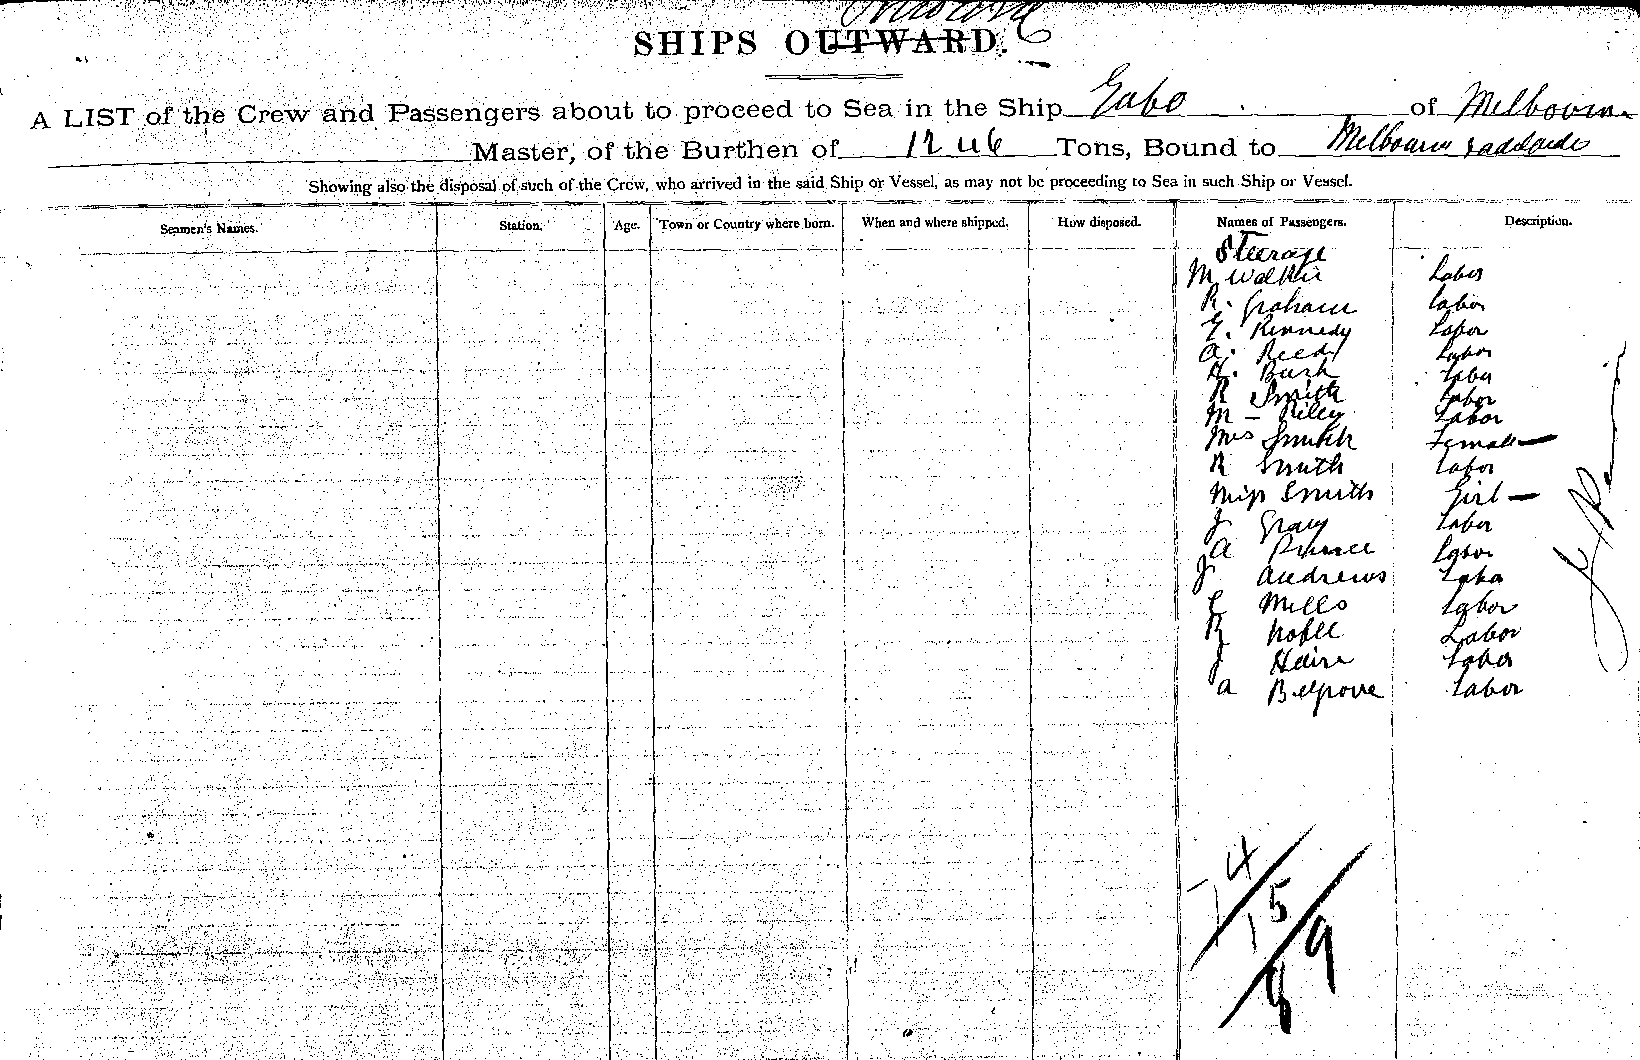 Inward
SHIPS OUTWARD.
A LIST of the Crew and Passengers about to proceed to Sea in the Ship Gabo of Melbourne
Master, of the Burthen of 1246 Tons, Bound to Melbourne & Adelaide
Showing also the disposal of such of the Crew, who arrived in the said Ship or Vessel, as may not be proceeding to Sea in such Ship or Vessel.
Seamen's Names. Station. Age. Town or Country where born. When and where shipped. How disposed. Names of Passengers. Description.
Steerage
M Walker Labor
R. Graham Labor
E. Kennedy Labor
A. Reed Labor
H. Bush Labor
R Smith Labor
M Riley Labor
Mrs Smith Female
R Smith Labor
Miss Smith Girl
J Gray Labor
A Prince Labor
J Andrews Labor
Mills Labor
R Noble Labor
J Haire Labor
A Belgrove Labor
4
15
9
8